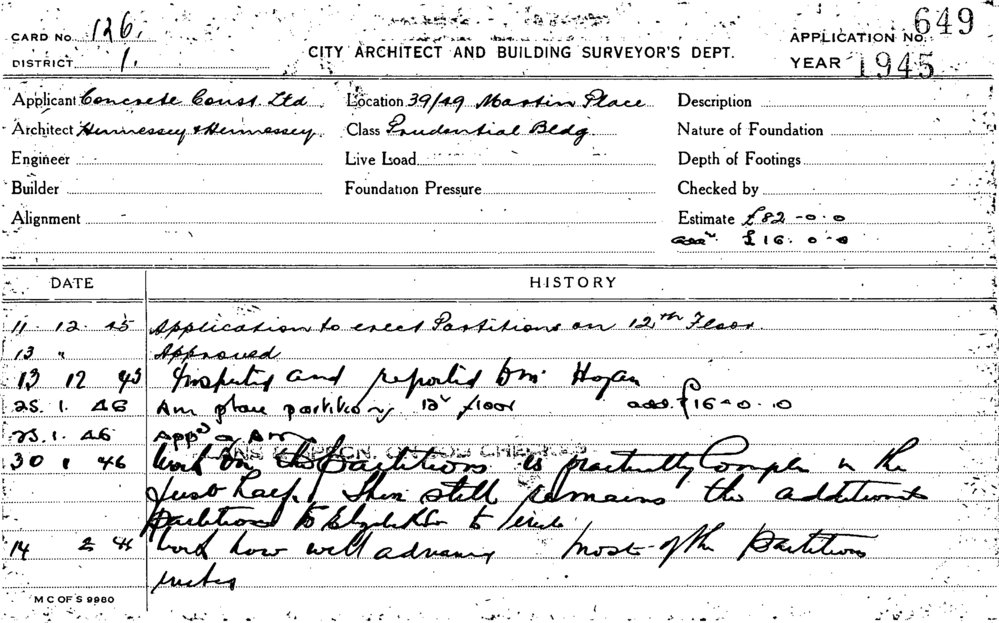 CARD No. 126.
DISTRICT 1.
CITY ARCHITECT AND BUILDING SURVEYOR'S DEPT.
APPLICATION No. 649
YEAR 1945
Applicant Concrete Const. Ltd Location 39/49 Martin Place Description
Architect Hennessey & Hennessey. Class Prudential Bldg. Nature of Foundation
Engineer Live Load Depth of Footings
Builder Foundation Pressure Checked by
Alignment Estimate £82-0-0
£16.0-0
DATE HISTORY
11. 12. 45 Application to erect Partitions on 12th Floor.
13 " Approved
13 12 45 Inspected and reported Hogan
25. 1. 46 Am plan partitions 12 floor add. £16-0.0
25. 1. 46 Appd
30 1 46 Work on the partitions is practically in the
half. still remains the
partitions to to
14 2 46 Work now well Most of the Partitions
M C OF S 9980